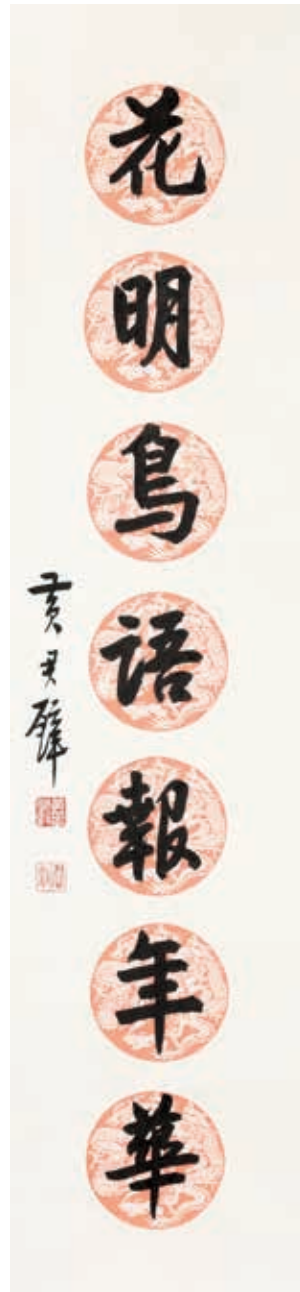 花明鳥語報年華
黃君璧